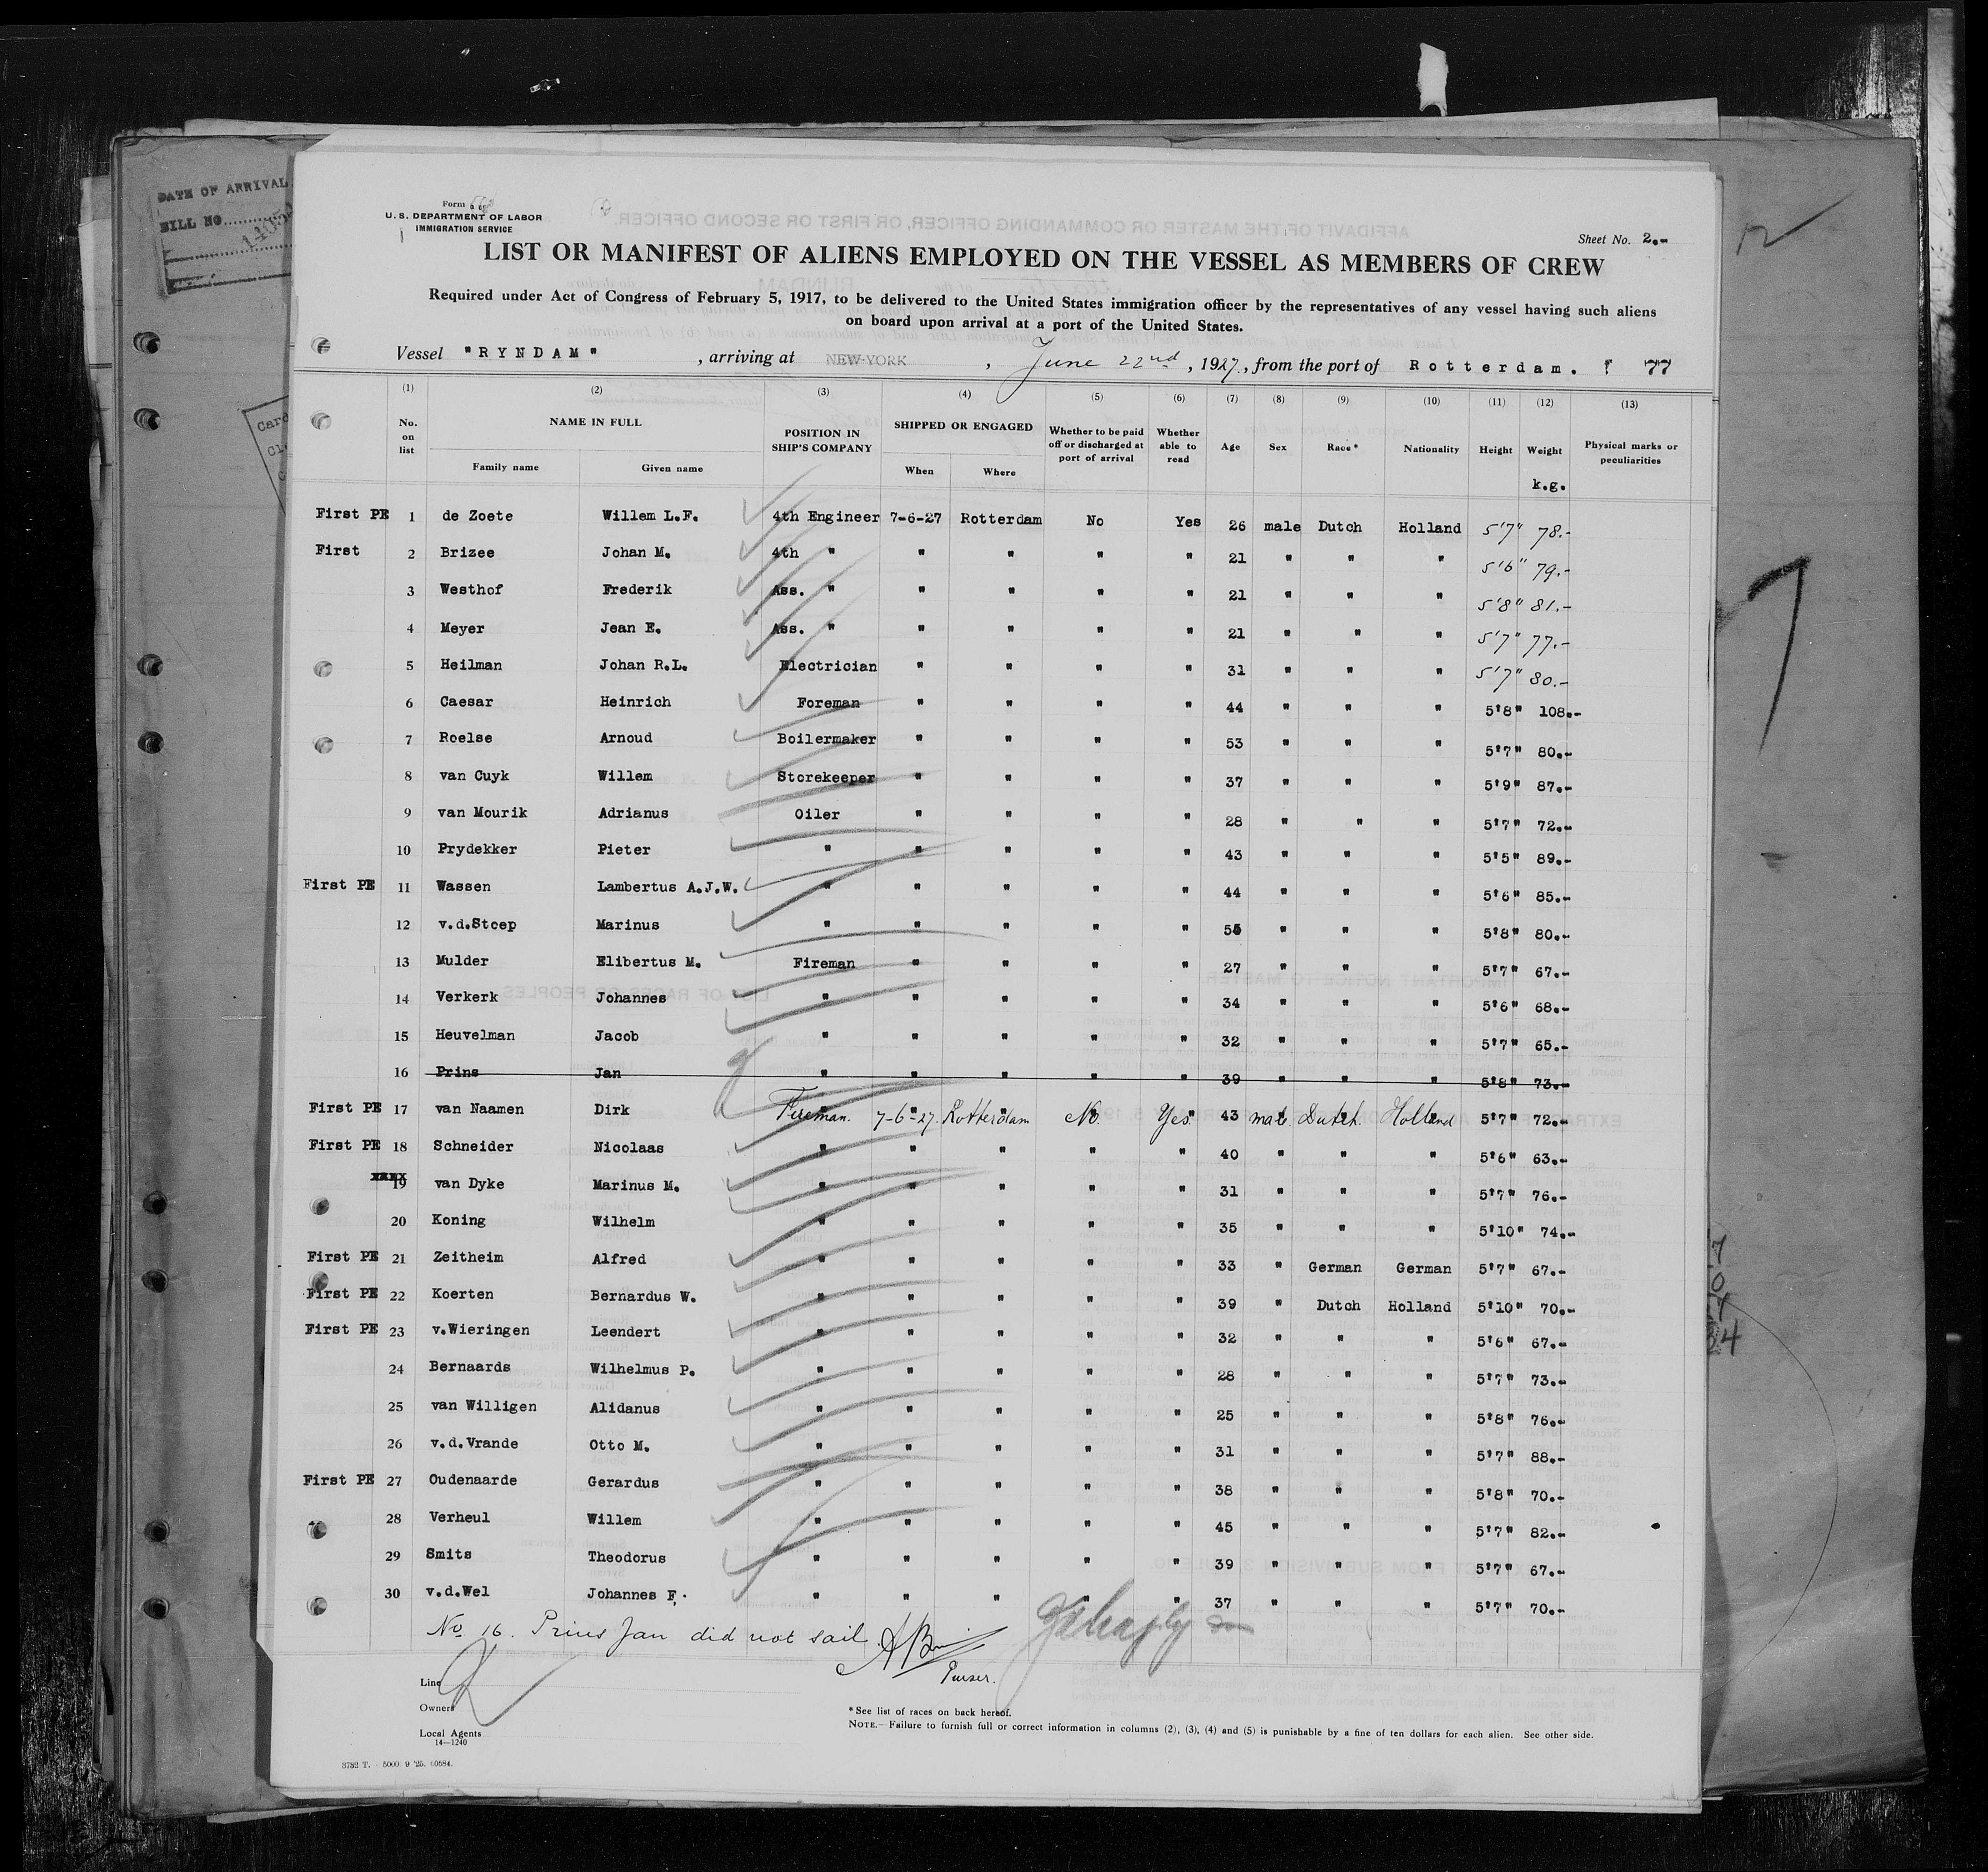 DATE OF ARRIVAL
BILL NO
Form
U. S. DEPARTMENT OF LABOR
IMMIGRATION SERVICE
Sheet No. 2.-
LIST OR MANIFEST OF ALIENS EMPLOYED ON THE VESSEL AS MEMBERS OF CREW
Required under Act of Congress of February 5, 1917, to be delivered to the United States immigration officer by the representatives of any vessel having such aliens
on board upon arrival at a port of the United States.
Vessel "RYNDAM" , arriving at NEW-YORK , June 22nd , 1927, from the port of Rotterdam. 77
(1) (2) (3) (4) (5) (6) (7) (8) (9) (10) (11) (12) (13)
No. on list NAME IN FULL Family name Given name POSITION IN SHIP'S COMPANY SHIPPED OR ENGAGED When Where Whether to be paid off or discharged at port of arrival Whether able to read Age Sex Race* Nationality Height Weight Physical marks or peculiarities
k.g.
First PE 1 de Zoete Willem L.F. 4th Engineer 7-6-27 Rotterdam No Yes 26 male Dutch Holland 5'7" 78.-
First 2 Brizee Johan M. 4th " " " " " 21 " " " 5'6" 79.-
3 Westhof Frederik Ass. " " " " " 21 " " " 5'8" 81.-
4 Meyer Jean E. Ass. " " " " " 21 " " " 5'7" 77.-
5 Heilman Johan R.L. Electrician " " " " 31 " " " 5'7" 80.-
6 Caesar Heinrich Foreman " " " " 44 " " " 5'8" 108.-
7 Roelse Arnoud Boilermaker " " " " 53 " " " 5'7" 80.-
8 van Cuyk Willem Storekeeper " " " " 37 " " " 5'9" 87.-
9 van Mourik Adrianus Oiler " " " " 28 " " " 5'7" 72.-
10 Prydekker Pieter " " " " " 43 " " " 5'5" 89.-
First PE 11 Wassen Lambertus A.J.W. " " " " " 44 " " " 5'6" 85.-
12 v.d.Stoep Marinus " " " " " 55 " " " 5'8" 80.-
13 Mulder Elibertus M. Fireman " " " " 27 " " " 5'7" 67.-
14 Verkerk Johannes " " " " " 34 " " " 5'6" 68.-
15 Heuvelman Jacob " " " " " 32 " " " 5'7" 65.-
16 Prins Jan " " " " " 39 " " " 5'8" 73.-
First PE 17 van Naamen Dirk Fireman. 7-6-27. Rotterdam No. Yes. 43 male. Dutch. Holland 5'7" 72.-
First PE 18 Schneider Nicolaas " " " " " 40 " " " 5'6" 63.-
19 van Dyke Marinus M. " " " " " 31 " " " 5'7" 76.-
20 Koning Wilhelm " " " " " 35 " " " 5'10" 74.-
First PE 21 Zeitheim Alfred " " " " " 33 " German German 5'7" 67.-
First PE 22 Koerten Bernardus W. " " " " " 39 " Dutch Holland 5'10" 70.-
First PE 23 v.Wieringen Leendert " " " " " 32 " " " 5'6" 67.-
24 Bernaards Wilhelmus P. " " " " " 28 " " " 5'7" 73.-
25 van Willigen Alidanus " " " " " 25 " " " 5'8" 76.-
26 v.d.Vrande Otto M. " " " " " 31 " " " 5'7" 88.-
First PE 27 Oudenaarde Gerardus " " " " " 38 " " " 5'8" 70.-
28 Verheul Willem " " " " " 45 " " " 5'7" 82.-
29 Smits Theodorus " " " " " 39 " " " 5'7" 67.-
30 v.d.Wel Johannes F. " " " " " 37 " " " 5'7" 70.-
No 16. Prins Jan did not sail.
Purser.
Line
Owners
Local Agents
14—1240
*See list of races on back hereof.
NOTE.—Failure to furnish full or correct information in columns (2), (3), (4) and (5) is punishable by a fine of ten dollars for each alien. See other side.